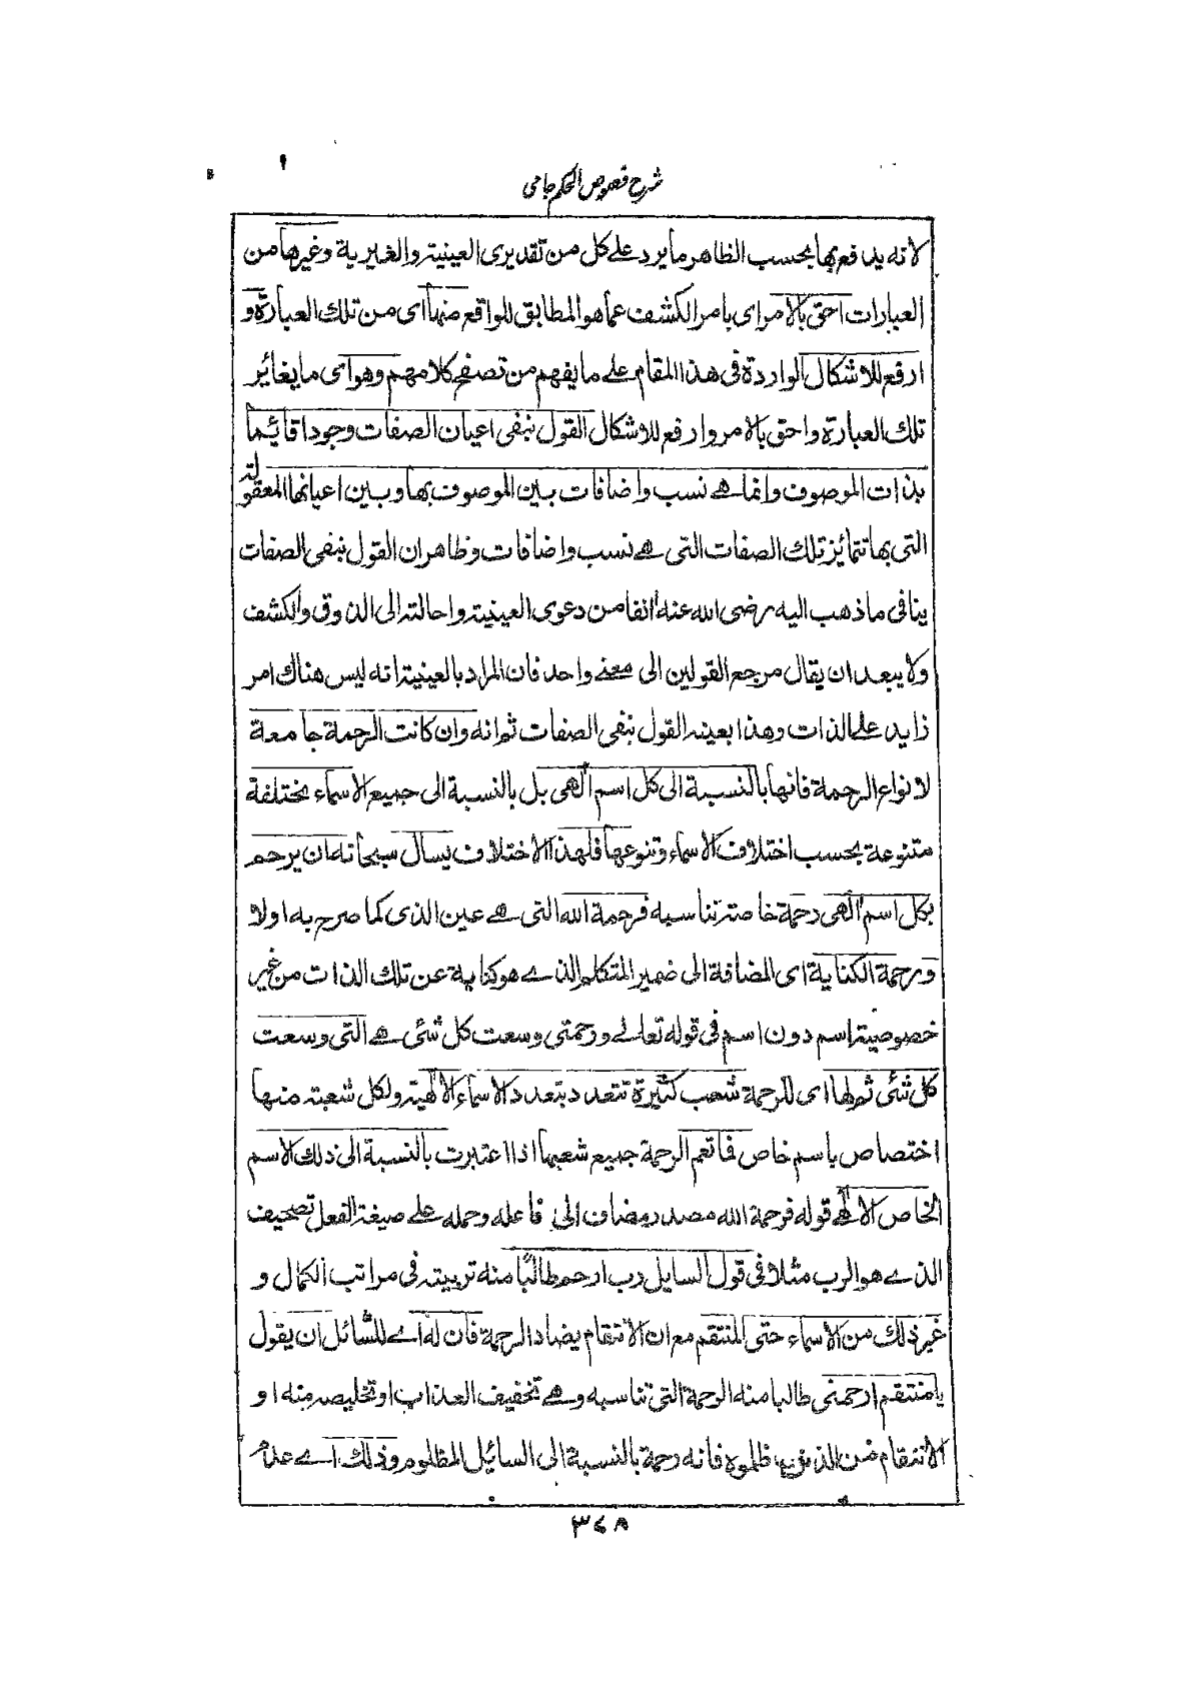 شرح فصوص الحكم جامى
لانه يدافع بها بحسب الظاهر ما يرد على كل من تقديرى العينية والغيرية وغيرها من
العبارات احق بالامر اى بامر الكشف عما هو المطابق للواقع منها اى من تلك العبارة و
ارفع للاشكال الواردة فى هذا المقام على ما يفهم من تصفح كلامهم وهو اى ما يغائر
تلك العبارة واحق بالامر وارفع للاشكال القول بنفى اعيان الصفات وجودا قائيما
بذات الموصوف وانما هے نسب واضافات بين الموصوف بها وبين اعيانها المعقولة
التى بها تتمائز تلك الصفات التى هے نسب واضافات وظاهر ان القول بنفى الصفات
ينافى ما ذهب اليه رضى الله عنه انفا من دعوى العينية واحالته الى الذوق والكشف
ولا يبعد ان يقال مرجع القولين الى معنے واحد فان المراد بالعينية انه ليس هناك امر
زايد على الذات وهذا بعينه القول بنفى الصفات ثم انه وان كانت الرحمة جامعة
لانواع الرحمة فانها بالنسبة الى كل اسم الهى بل بالنسبة الى جميع الاسماء مختلفة
متنوعة بحسب اختلاف الاسماء وتنوعها فلهذا الاختلاف يسال سبحانه ان يرحم
بكل اسم الهى رحمة خاصة تناسبه فرحمة الله التى هے عين الذى كما صرح به اولا
ورحمة الكناية اى المضافة الى ضمير المتكلم الذے هو كناية عن تلك الذات من غير
خصوصية اسم دون اسم فى قوله تعالے ورحمتى وسعت كل شئى هے التى وسعت
كل شئى ثم لها اى للرحمة شعب كثيرة تتعدد بتعدد الاسماء الالهية ولكل شعبة منها
اختصاص باسم خاص فما تعم الرحمة جميع شعبها اذا اعتبرت بالنسبة الى ذلك الاسم
الخاص الالهے قوله فرحمة الله مصدر مضاف الى فاعله وحمله على صيغة الفعل تصحيف
الذے هو الرب مثلا فى قول السايل رب ارحم طالبا منه تربيته فى مراتب الكمال و
غير ذلك من الاسماء حتى المنتقم مع ان الانتقام يضاد الرحمة فان له اے للسائل ان يقول
يا منتقم ارحمنى طالبا منه الرحمة التى تناسبه وهے تخفيف العذاب او تخليصه منه او
الانتقام من الذين ظلموه فانه رحمة بالنسبة الى السايل المظلوم وذلك اے عدم
٣٤٨